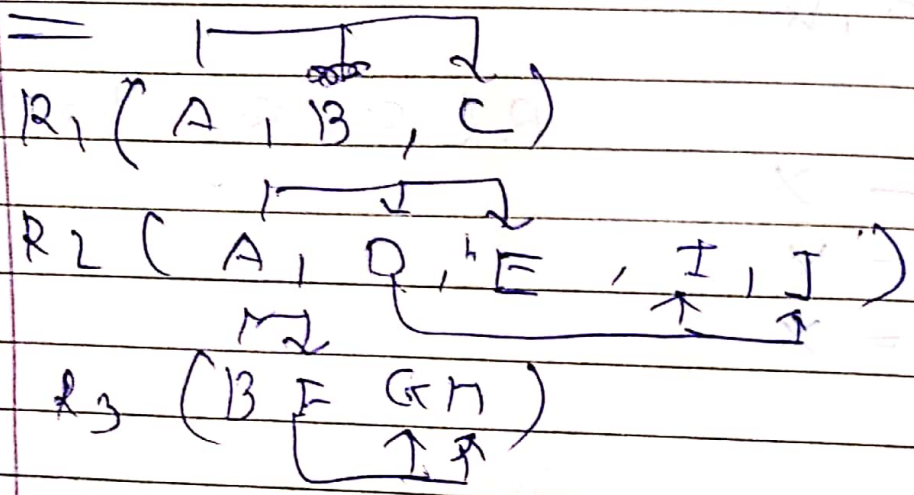 R1 ( A , B , C )
R2 ( A , D , E , I , J )
R3 ( B F G H )